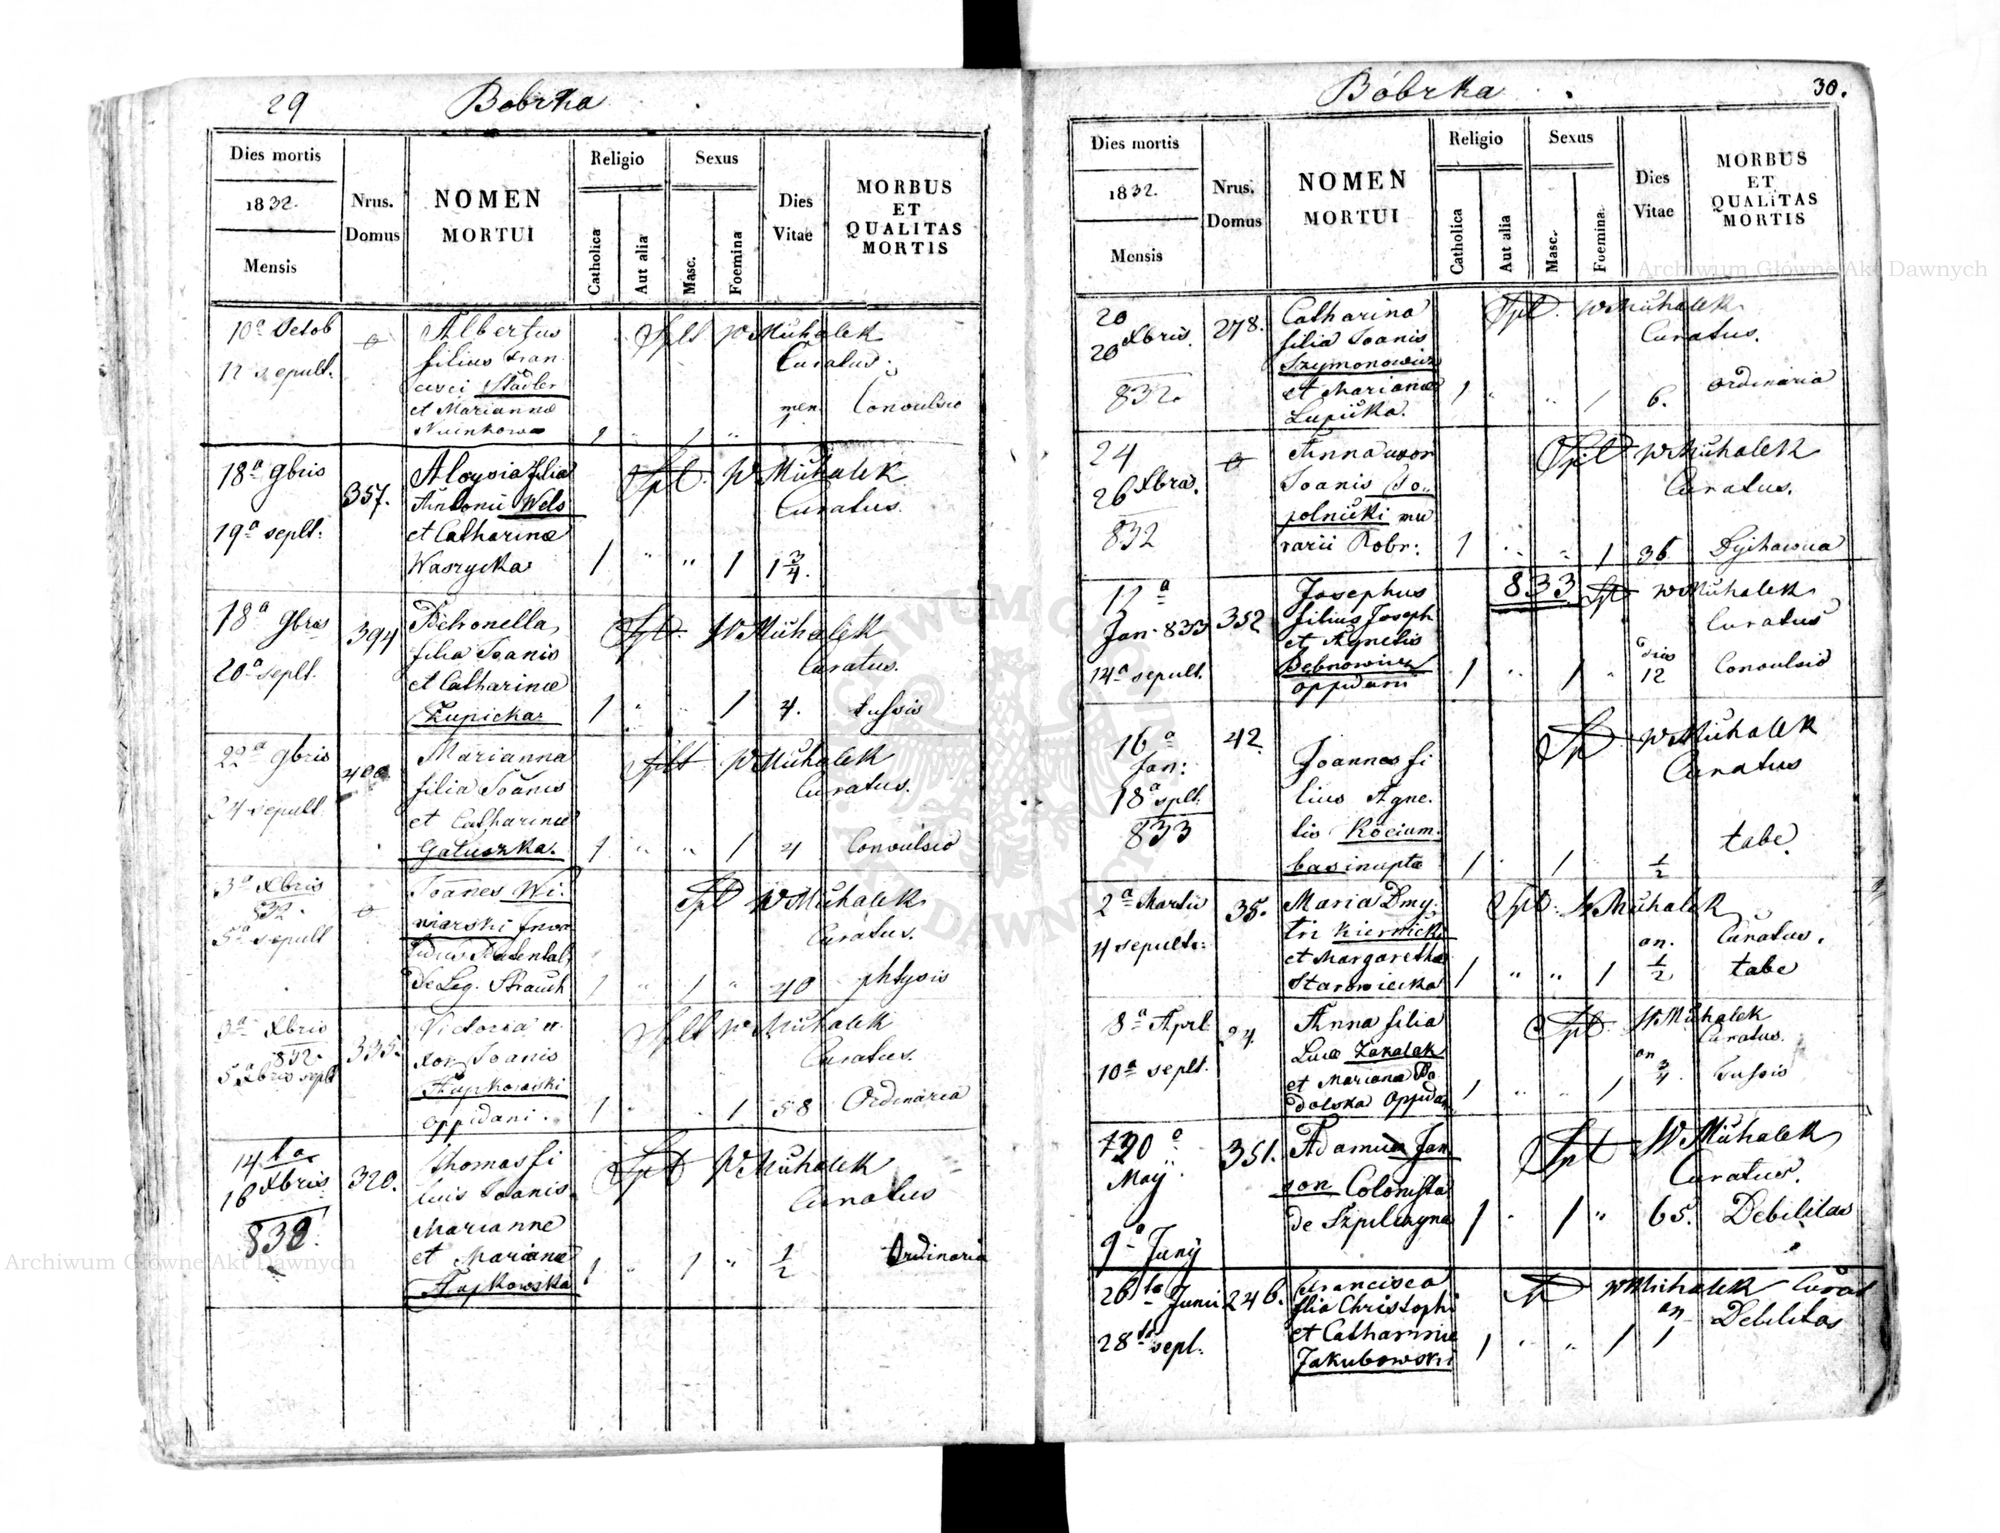 29 Bobrka
Dies mortis
1832.
Mensis
Nrus.
Domus
NOMEN
MORTUI
Religio
Catholica
Aut alia
Sexus
Masc.
Foemina
Dies
Vitae
MORBUS
ET
QUALITAS
MORTIS
10a Octob
12 sepult.
Albertus
filius Fran
cisci Stadler
et Marianna
Splt W Michalek
Curatus
1 " 1 " men. 1 Convulsio
18a 9bris
19aseplt:
357.
Aloysia filia
Antonii Wels
et Catharinae
Waszycka
Spl. W Michalek
Curatus
1 " " 1 1 3/4.
18a 9bras
20a seplt.
394
Petronella
filia Joanis
et Catharinae
Łupicka
Splt. W Michalek
Curatus.
1 " 1 4. tussis
22a 9bris
24 sepult
400
Marianna
filia Joanis
et Catharinae
Gałuszka.
Splt W Michalek
Curatus.
1 " " 1 4 Convulsio
3a Xbris
832.
5a sepult
Joanes Wi
niarski
de Leg. Strauch
Spl W Michalek
Curatus.
1 " 1 " 40 phtysis
3a Xbris
832.
5 Xbris seplt
335.
Victoria u
xor Joanis
oppidani.
Splt W Michalek
Curatus.
1 " 1 58 Ordinaria
14 ta
16 Xbris
832.
320.
Thomas fi
lius Joanis
Marianne
et Mariana
Splt W Michalek
Curatus
1 " 1 " 1/2 Ordinaria
Bóbrka 30.
Dies mortis
1832.
Mensis
Nrus.
Domus
NOMEN
MORTUI
Religio
Catholica
Aut alia
Sexus
Masc.
Foemina.
Dies
Vitae
MORBUS
ET
QUALITAS
MORTIS
20
20 Xbris.
832.
278.
Catharina
filia Joanis
Szymonowicz
et Mariana
Łupicka.
Spl. W Michalek
Curatus.
1 " " 1 6. ordinaria
24
26 Xbra.
832
Anna uxor
Joanis To
polnicki mu
rarii Bobr:
Splt W Michalek
Curatus.
1 " " 1 36 Dychawica
12a
Jan. 833
14a sepult.
352
Josephus
filius Joseph
et Agnetis
Dębnowicz
oppidani
833
Spl W Michalek
Curatus
1 " 1 " dies 12 Convulsio
16a
Jan:
18a splt.
833
42.
Joannes fi
lius Agne
tis Kocium
bas inupta
Sp W Michalek
Curatus
1 1 1/2 tabe
2a Martii
4 sepult:
35.
Maria Dmy
tri Kiernicki
et Margaretha
Starowiecka
Splt. W Michalek
Curatus.
1 " " 1 an. 1/2 tabe
8a Aprl
10a seplt.
94
Anna filia
Luca Zakalak
et Mariana Po
dolska Oppidan
Spl. W Michalek
Curatus.
1 " " 1 an 3/4. tussis
30a
May
9a Junÿ
351.
Adamus Jan
son Colonista
de Szpilczyna
Splt W Michalek
Curatus.
1 " 1 " 65. Debilitas
26ta Junii
28 sepl.
246.
Francisca
filia Christophi
et Catharinae
Jakubowski
Sp W Michalek Curat
1 " " 1 an 1 Debilitas
Archiwum Główne Akt Dawnych
Archiwum Główne Akt Dawnych
ARCHIWUM GŁÓWNE AKT DAWNYCH